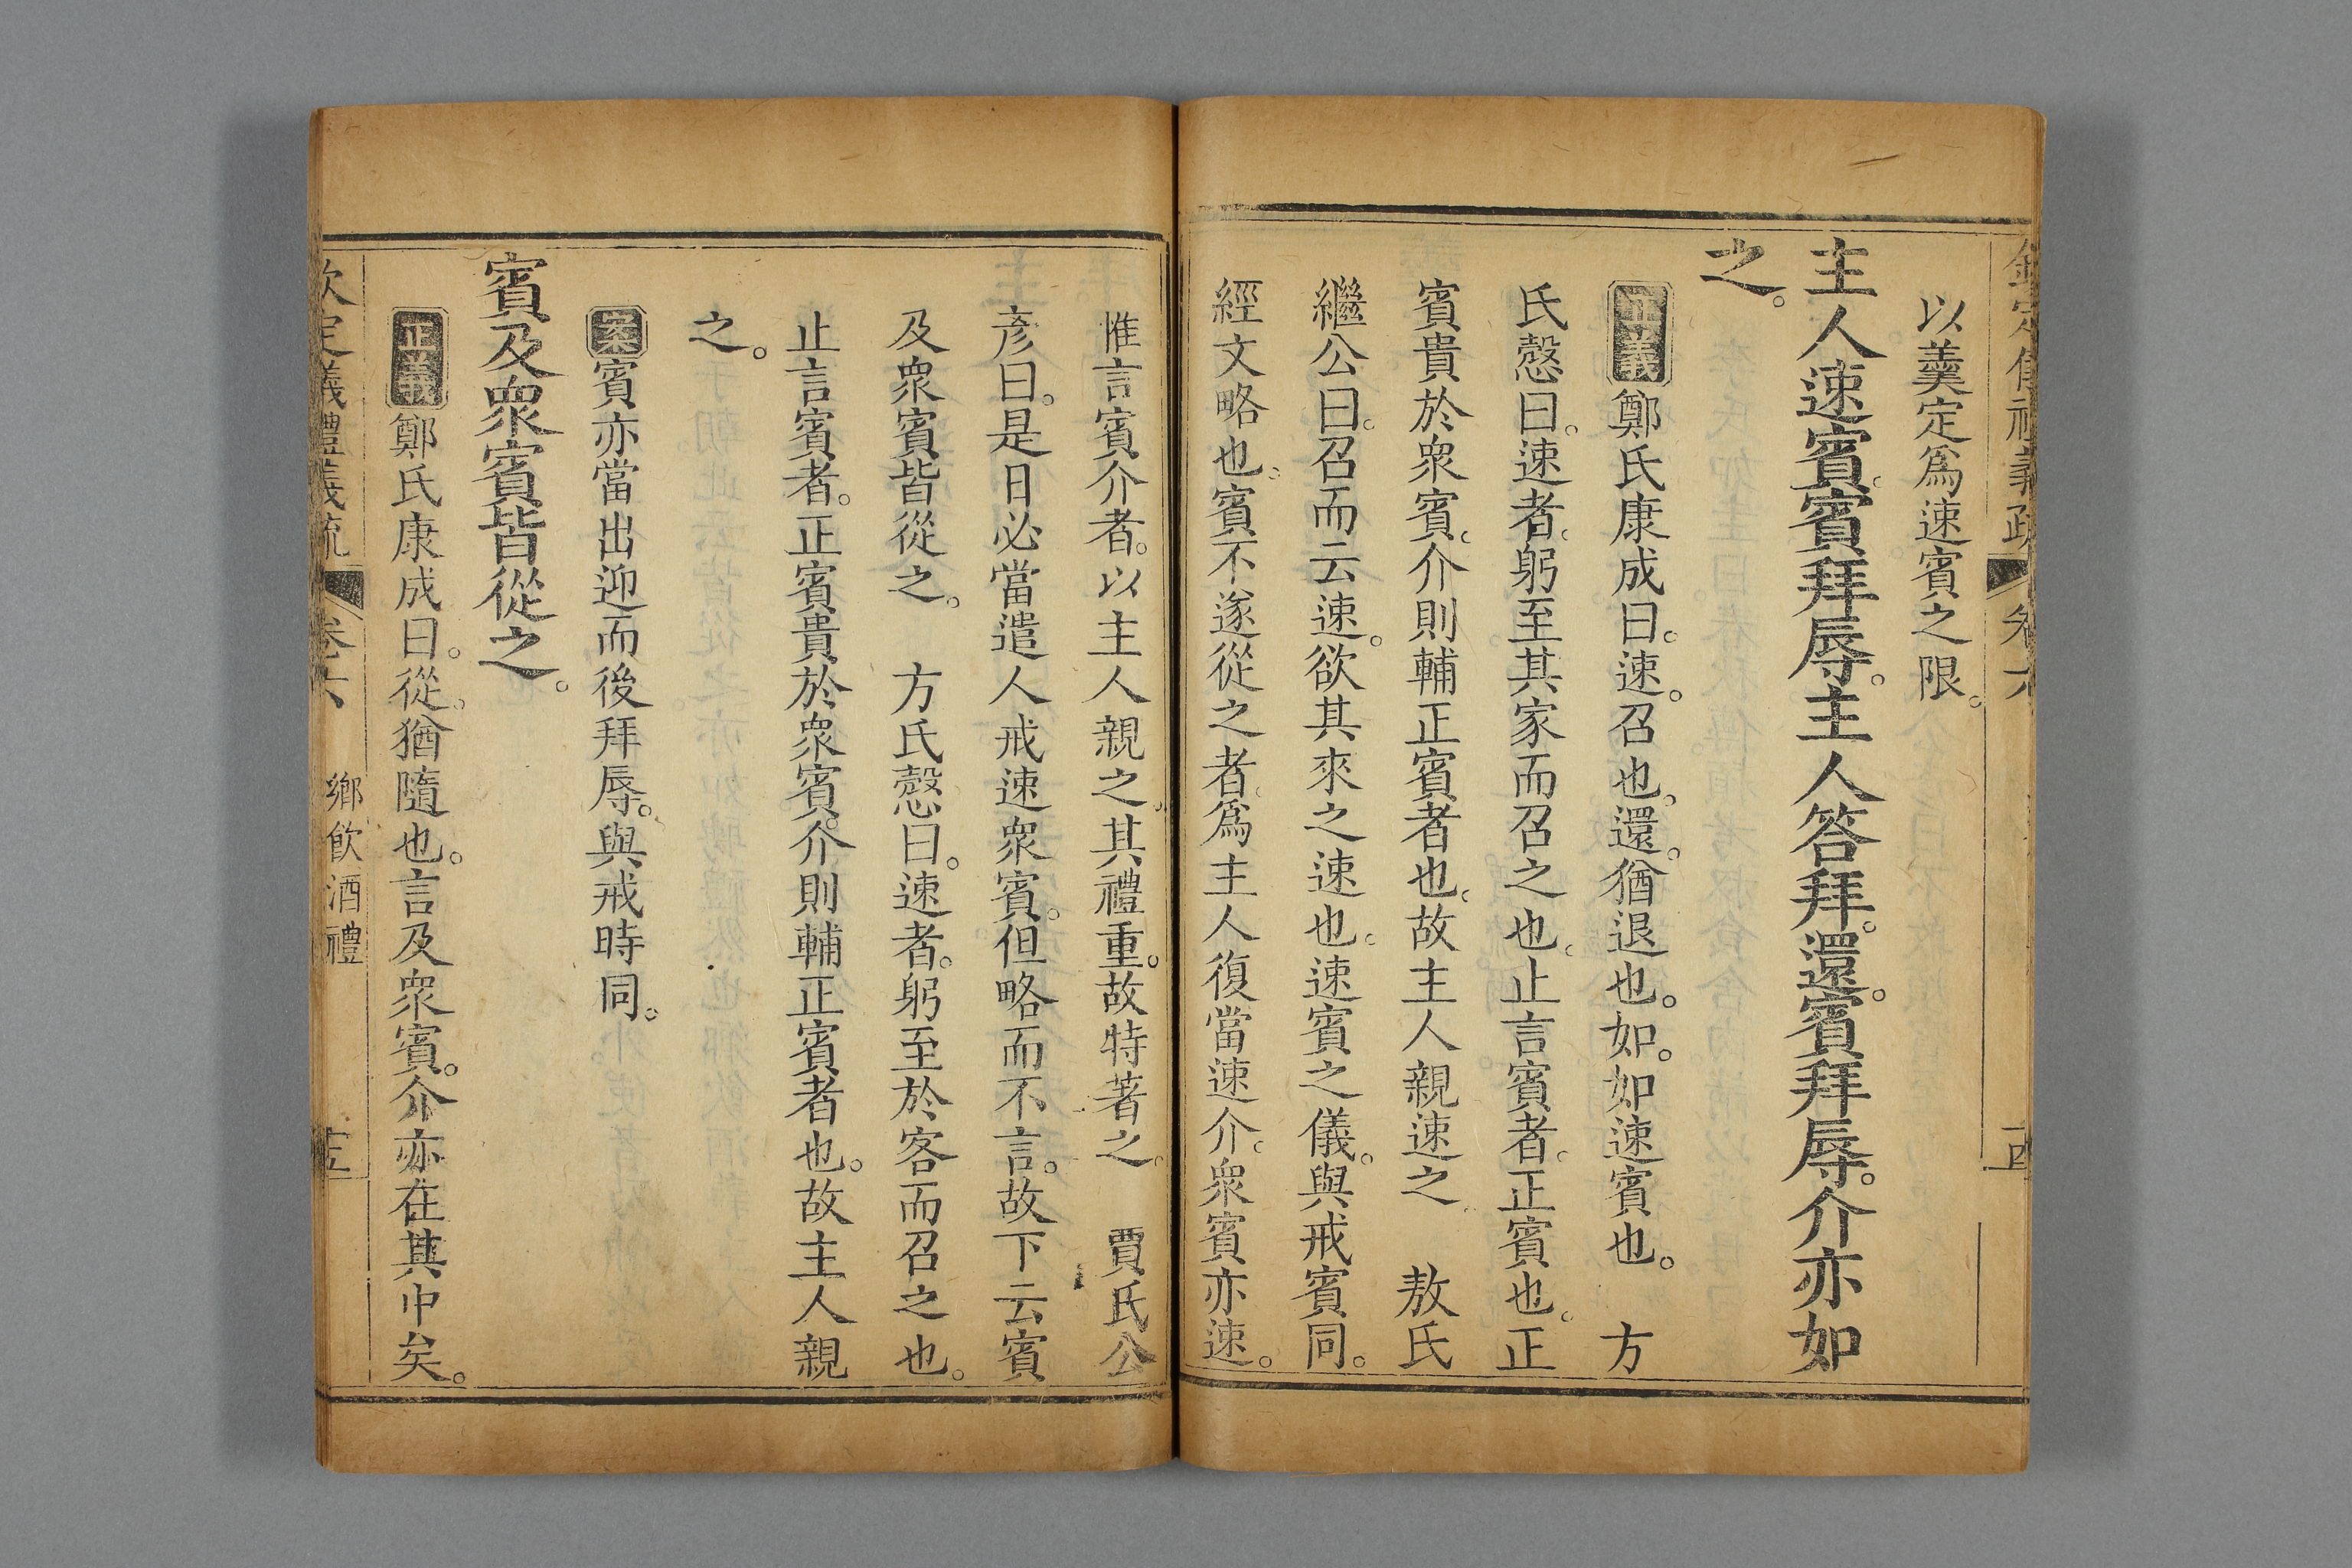 欽定儀禮義疏 卷六 十四
以羹定爲速賓之限。
主人速賓。賓拜辱。主人答拜。還。賓拜辱。介亦如
之。
正義鄭氏康成曰。速。召也。還。猶退也。如。如速賓也。 方
氏慤曰。速者。躬至其家而召之也。止言賓者。正賓也。正
賓貴於衆賓。介則輔正賓者也。故主人親速之。 敖氏
繼公曰。召而云速。欲其來之速也。速賓之儀。與戒賓同。
經文略也。賓不遂從之者。爲主人復當速介。衆賓亦速。
惟言賓介者。以主人親之。其禮重。故特著之。 賈氏公
彥曰。是日必當遣人戒速衆賓。但略而不言。故下云賓
及衆賓皆從之。 方氏慤曰。速者。躬至於客而召之也。
止言賓者。正賓貴於衆賓。介則輔正賓者也。故主人親
之。
案賓亦當出迎而後拜辱。與戒時同。
賓及衆賓皆從之。
正義鄭氏康成曰。從。猶隨也。言及衆賓。介亦在其中矣。
欽定儀禮義疏 卷六 鄉飲酒禮 十五